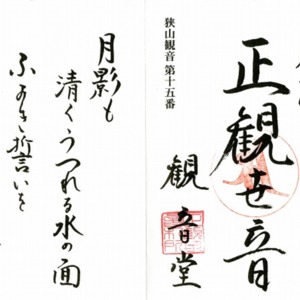 正観世音
狭山観音 第十五番
観音堂
月影も
清くうつれる水の面
ふかき誓いを